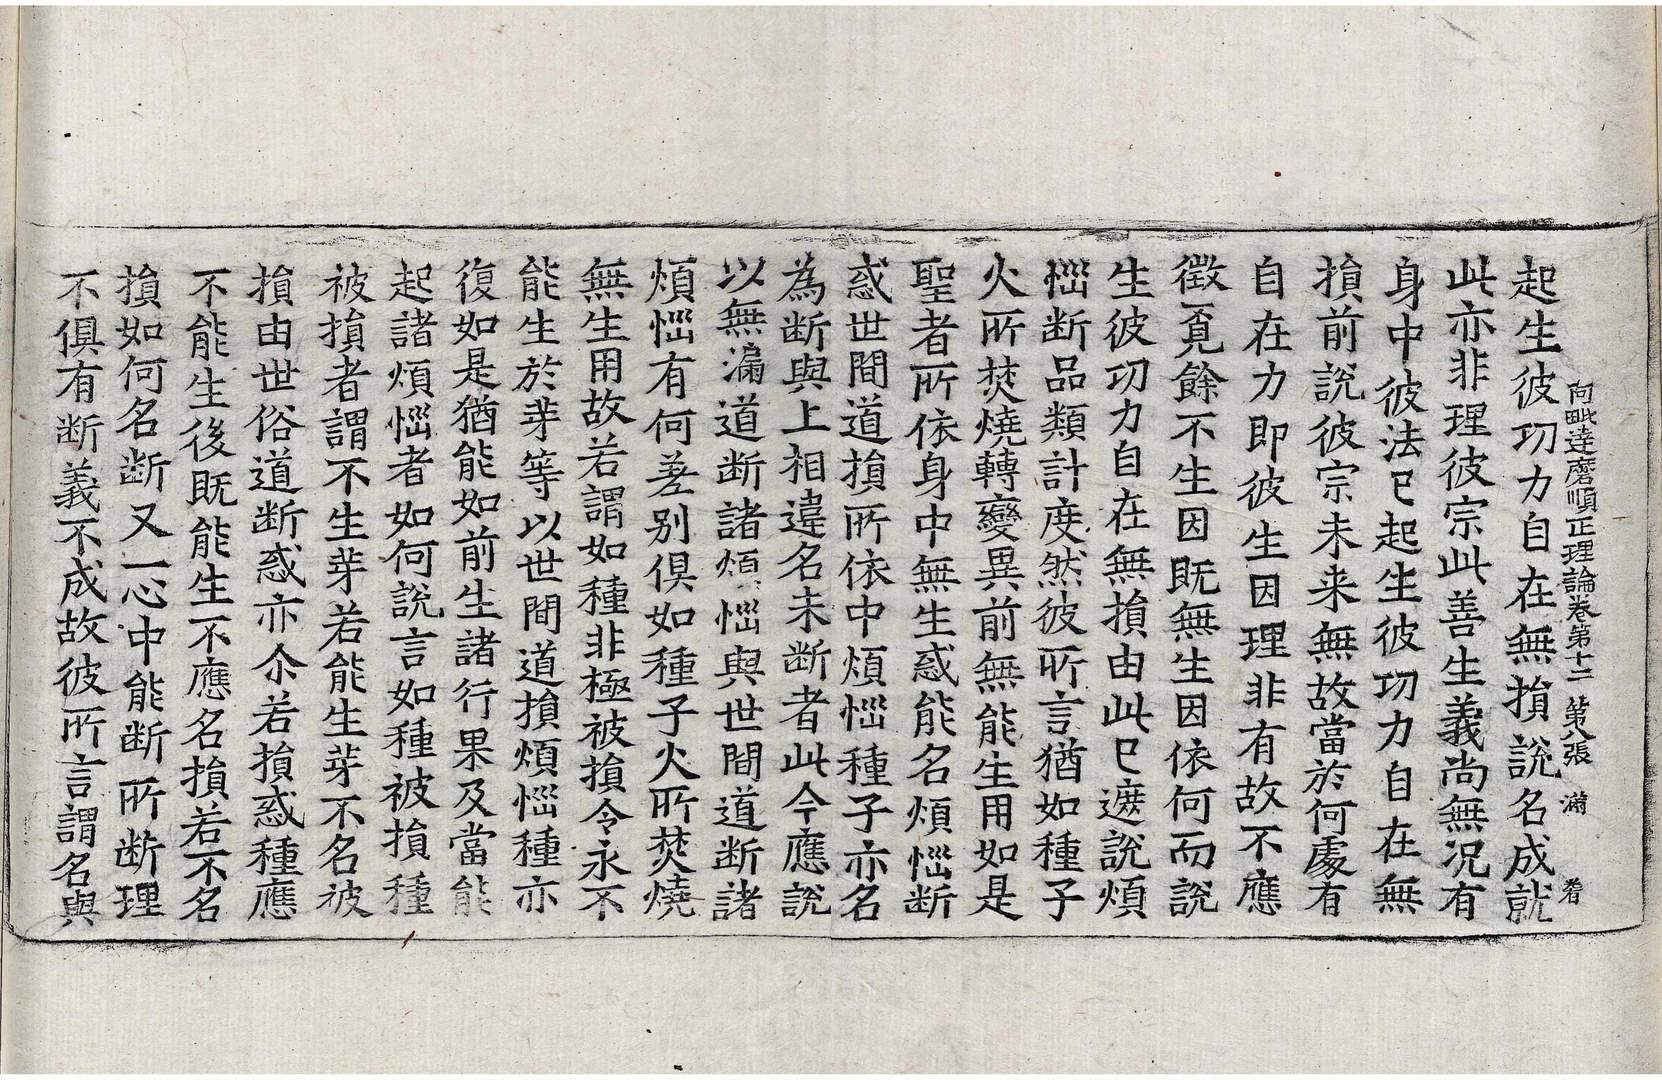 阿毗達磨順正理論卷第十二 第八張 滿
起生彼功力自在無損說名成就
此亦非理彼宗此善生義尚無況有
身中彼法已起生彼功力自在無
損前說彼宗未来無故當於何處有
自在力即彼生因理非有故不應
徵覓餘不生因既無生因依何而說
生彼功力自在無損由此已遮說煩
惱断品類計度然彼所言猶如種子
火所焚燒轉變異前無能生用如是
聖者所依身中無生惑能名煩惱断
惑世間道損所依中煩惱種子亦名
為断與上相違名未断者此今應說
以無漏道断諸煩惱與世間道断諸
煩惱有何差别俱如種子火所焚燒
無生用故若謂如種非極被損令永不
能生於芽等以世間道損煩惱種亦
復如是猶能如前生諸行果及當能
起諸煩惱者如何說言如種被損種
被損者謂不生芽若能生芽不名被
損由世俗道断惑亦尒若損惑種應
不能生後既能生不應名損若不名
損如何名断又一心中能断所断理
不俱有断義不成故彼所言謂名與